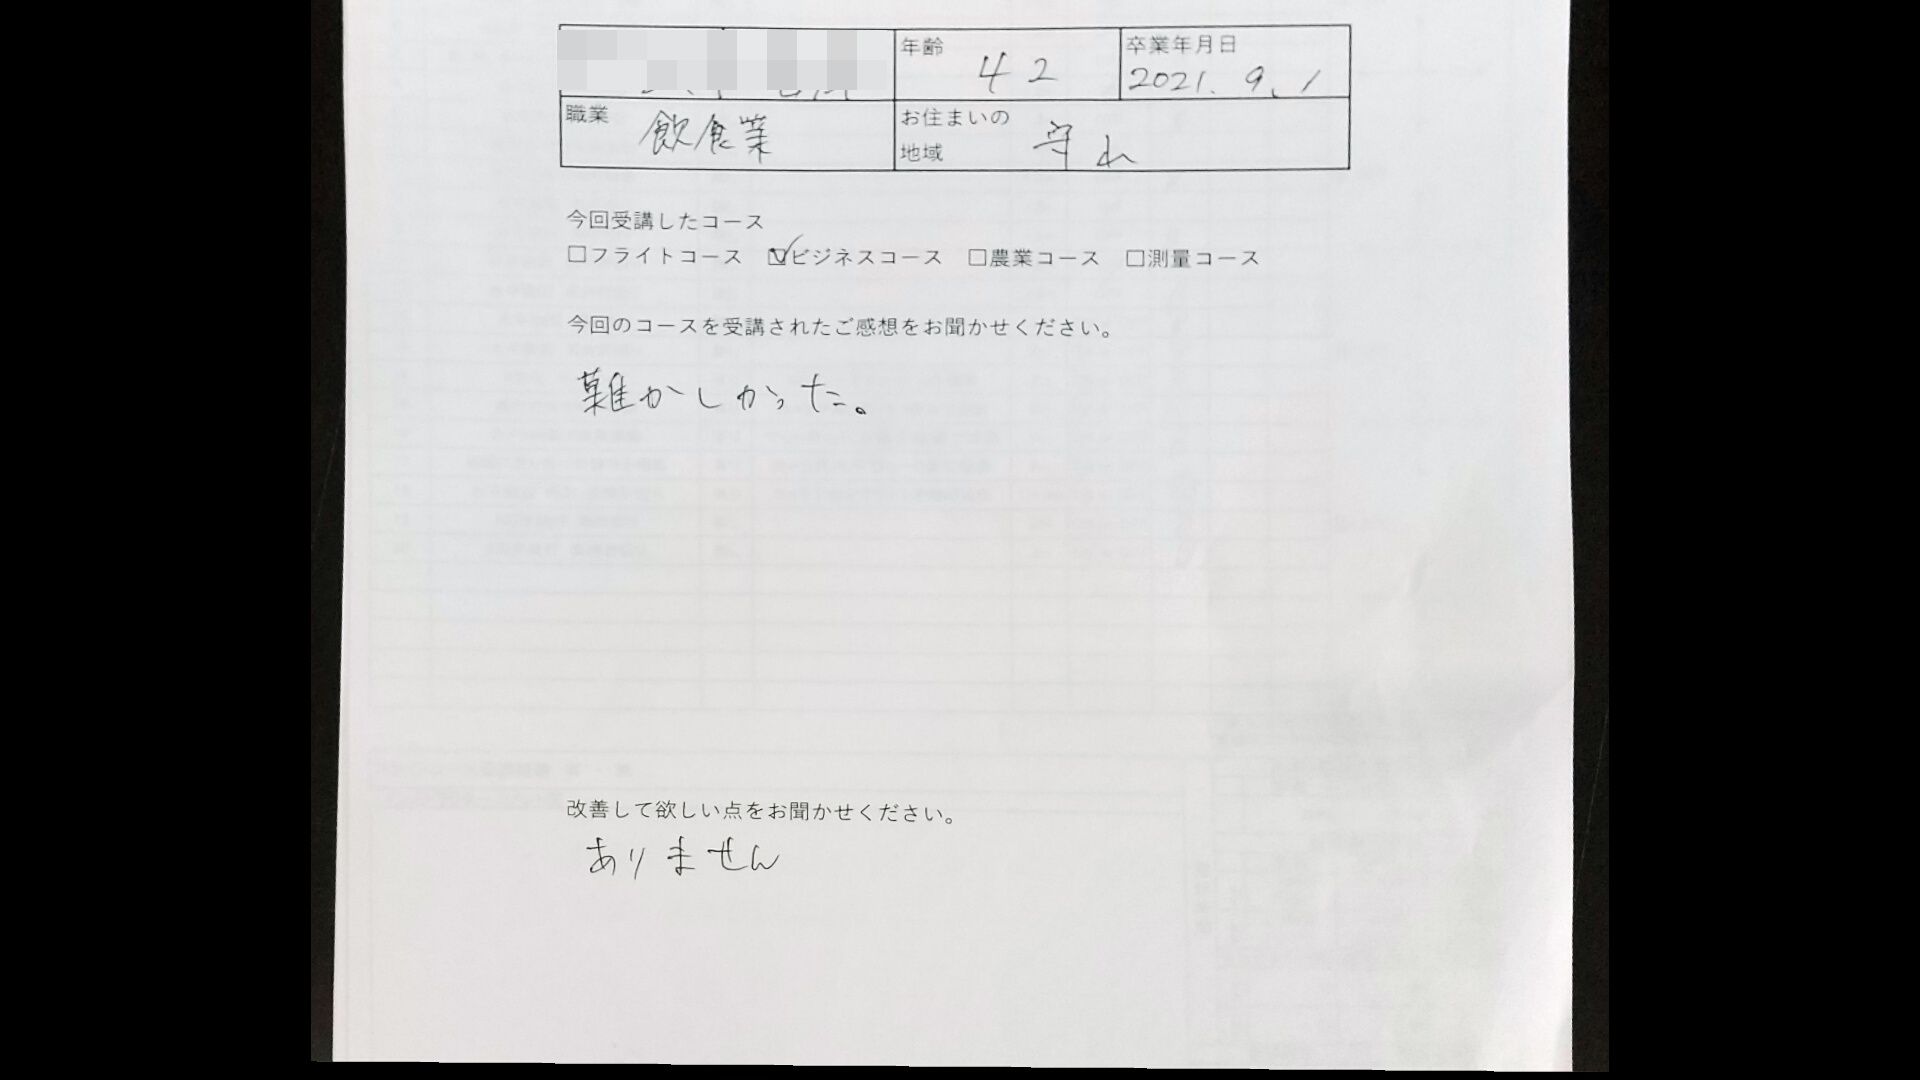 年齢 42
卒業年月日 2021.9.1
職業 飲食業
お住まいの
地域
今回受講したコース
□フライトコース ☑ビジネスコース □農業コース □測量コース
今回のコースを受講されたご感想をお聞かせください。
難かしかった。
改善して欲しい点をお聞かせください。
ありません